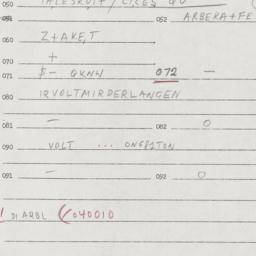 050
051 052 ARBEKA+FE
060 Z+AKE,T
070 +
071 $- QKNW 072 -
080 IRVOLTMIRDERLANGEN
081 - 082 O
090 VOLT ... ON6B1TON
091 - 092 O
DI ARBL (040010